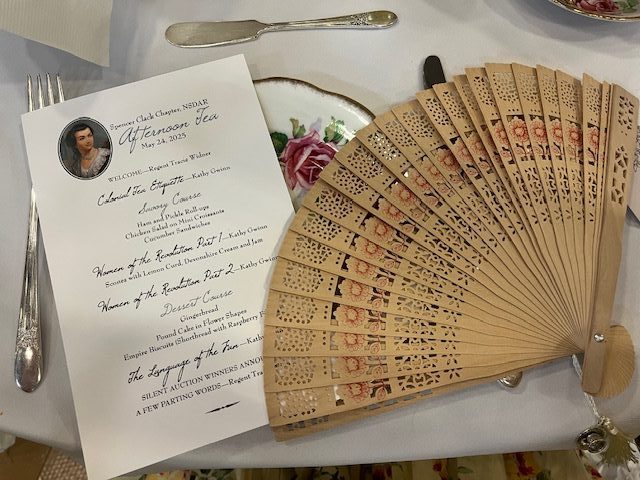 Spencer Clack Chapter, NSDAR
Afternoon Tea
May 24, 2025
WELCOME—Regent Tracie Widner
Colonial Tea Etiquette—Kathy Gwinn
Savory Course
Ham and Pickle Roll-ups
Chicken Salad on Mini Croissants
Cucumber Sandwiches
Women of the Revolution Part 1—Kathy Gwinn
Scones with Lemon Curd, Devonshire Cream and Jam
Women of the Revolution Part 2—Kathy Gwinn
Dessert Course
Gingerbread
Pound Cake in Flower Shapes
Empire Biscuits (Shortbread with Raspberry
The Language of the Fan—Kathy
SILENT AUCTION WINNERS
A FEW PARTING WORDS—Regent